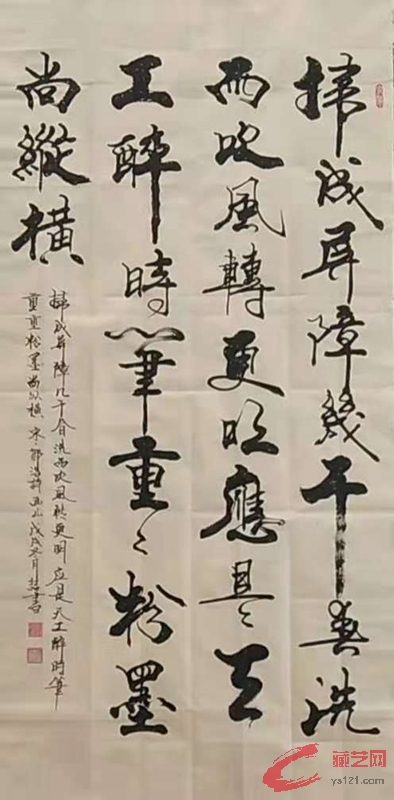 掃成屏障幾千春洗
雨吹風轉更明應是天
工醉時筆重〻粉墨
尚縱橫
掃成屏障几千春洗雨吹風轉更明应是天工醉時筆
重重粉墨尚纵横 宋·邹浩詩画山 戊戌冬月 書
藏艺网
ys121.com